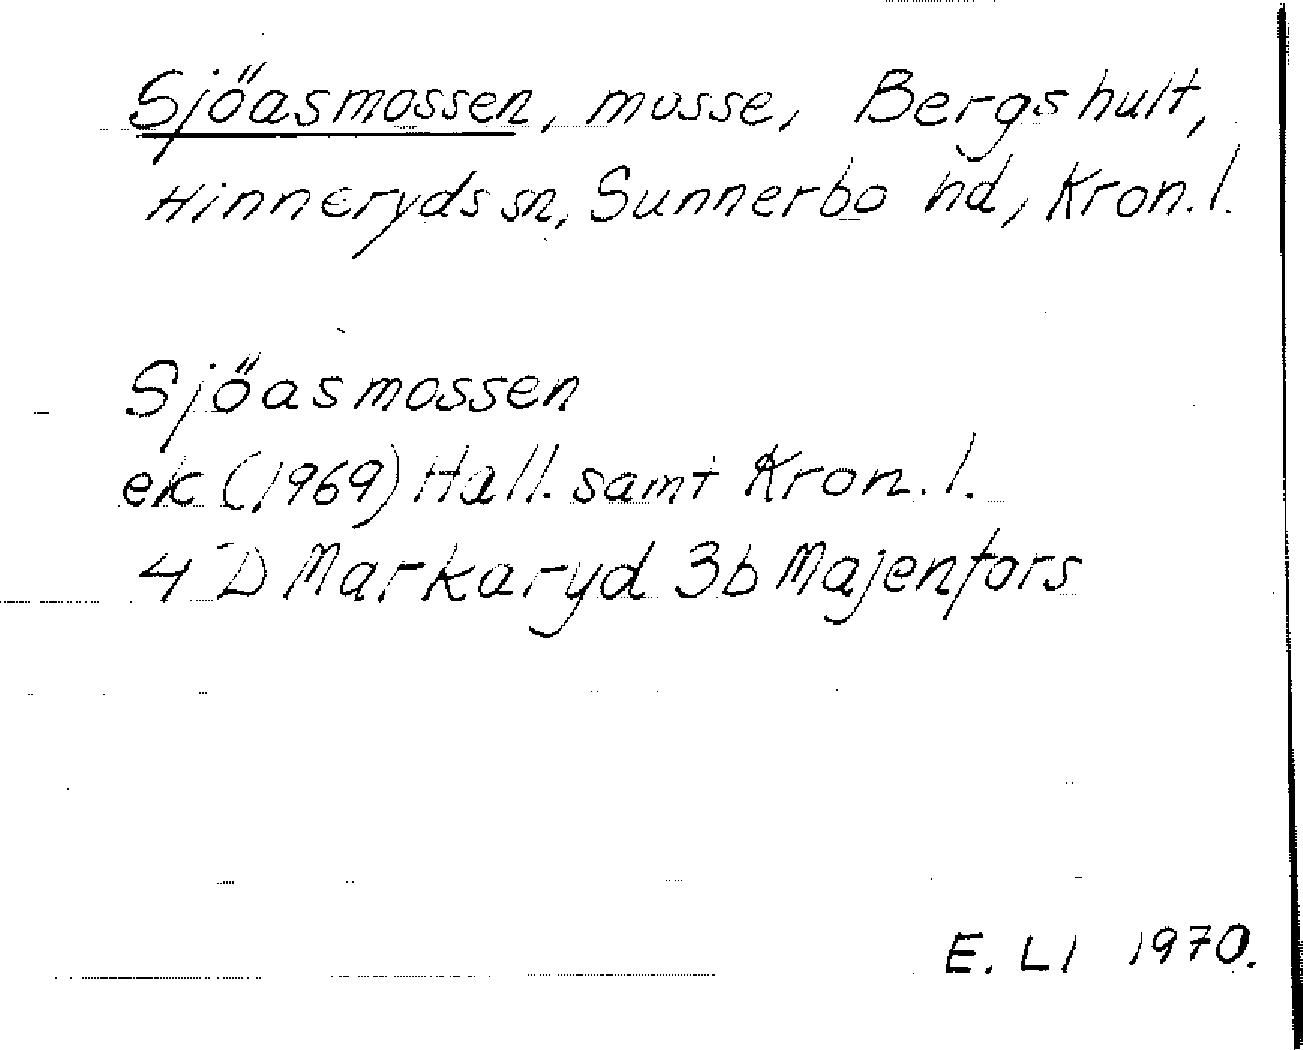 Sjöasmossen, mosse, Bergshult,
Hinneryds sn, Sunnerbo hd, Kron. l.
Sjöasmossen
ek (1969) Hall. samt Kron. l.
4 D Markaryd 3b Majenfors
E. LI 1970.